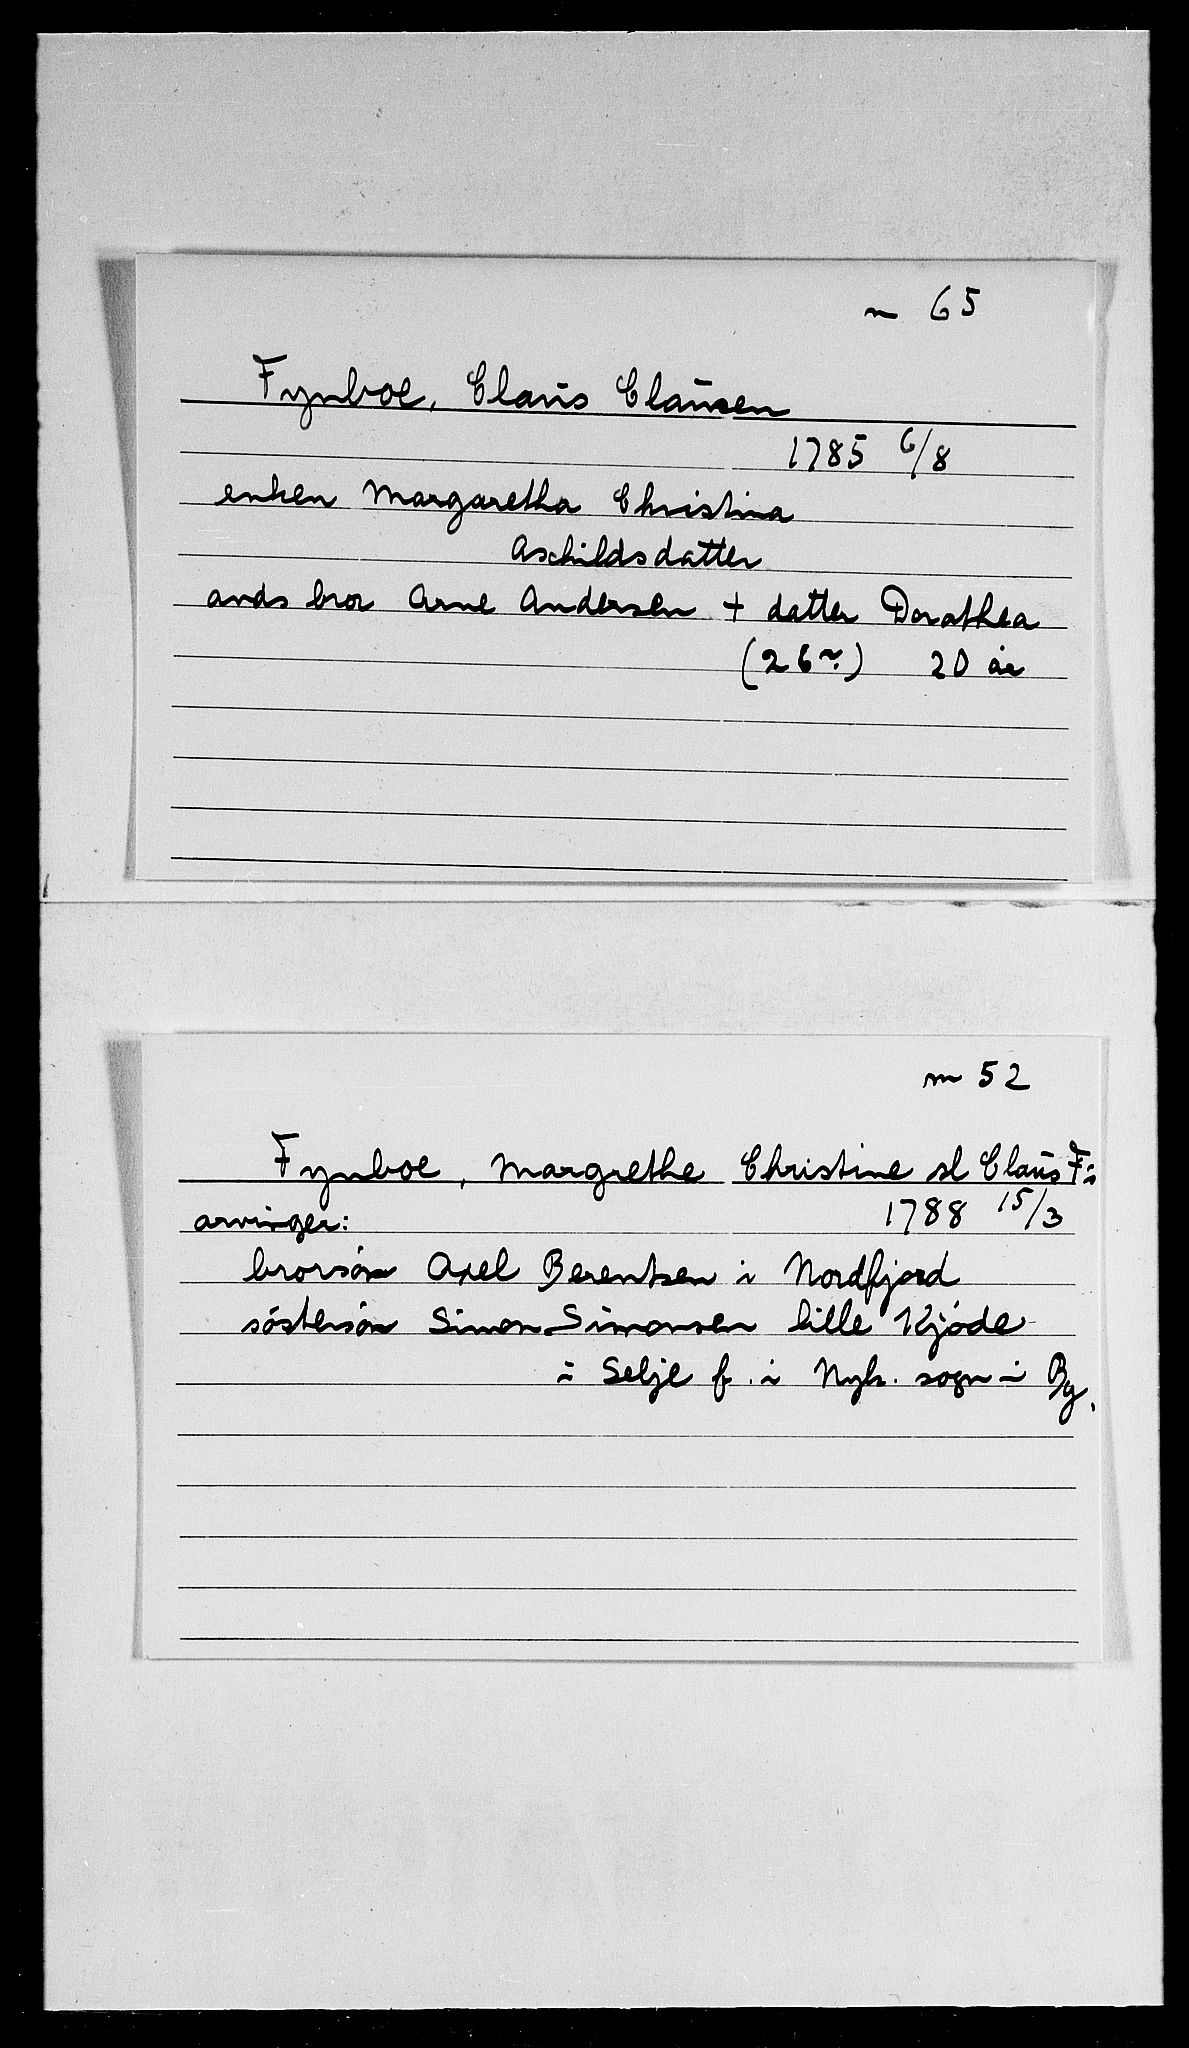 m 65
Fynboe, Claus Clausen
1785 6/8
enken Margaretha Christina
Aschildsdatter
ands bror Arne Andersen + datter Dorothea
(26 r.) 20 år
m 52
Fynboe, Margrethe Christine sl Claus F:s
arvinger: 1788 15/3
brorsøn Axel Berentsen i Nordfjord
søstersøn Simon Simonsen lille Kjøde
i Selje f. i Nyk. sogn i Bg.